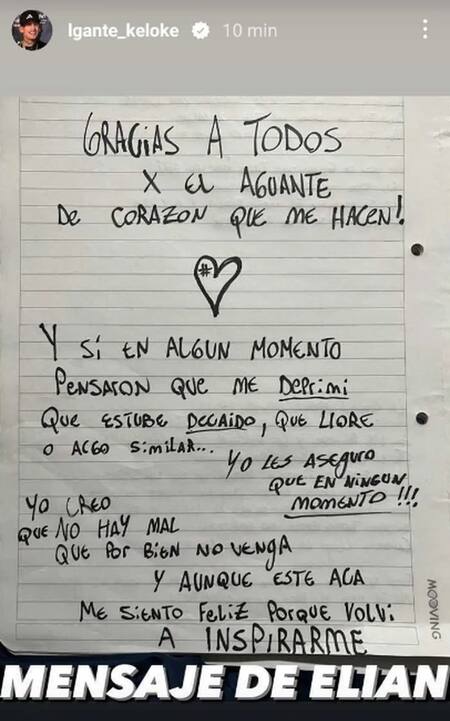 lgante_keloke 10 min
GRACIAS A TODOS
X EL AGUANTE
DE CORAZON QUE ME HACEN!
#
Y SI EN ALGUN MOMENTO
PENSARON QUE ME DEPRIMI
QUE ESTUBE DECAIDO, QUE LLORE
O ALGO SIMILAR...
YO LES ASEGURO
QUE EN NINGUN
MOMENTO!!!
YO CREO
QUE NO HAY MAL
QUE POR BIEN NO VENGA
Y AUNQUE ESTE ACA
ME SIENTO FELIZ PORQUE VOLVI
A INSPIRARME
MOOVING
MENSAJE DE ELIAN